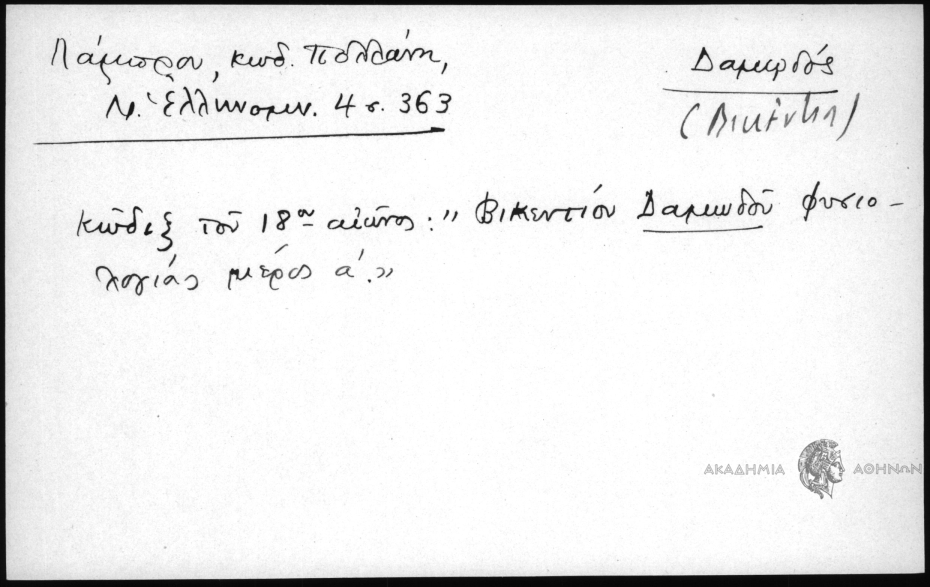 Λάμπρου, κωδ. Πολλάνη,
Δαμωδός
Ν. Ἑλληνομν. 4 σ. 363
(Βικέντιος)
κῶδιξ τοῦ 18ου αἰῶνος: „Βικεντίου Δαμωδοῦ φυσιο-
λογίας μέρος α΄.„
ΑΚΑΔΗΜΙΑ ΑΘΗΝΩΝ